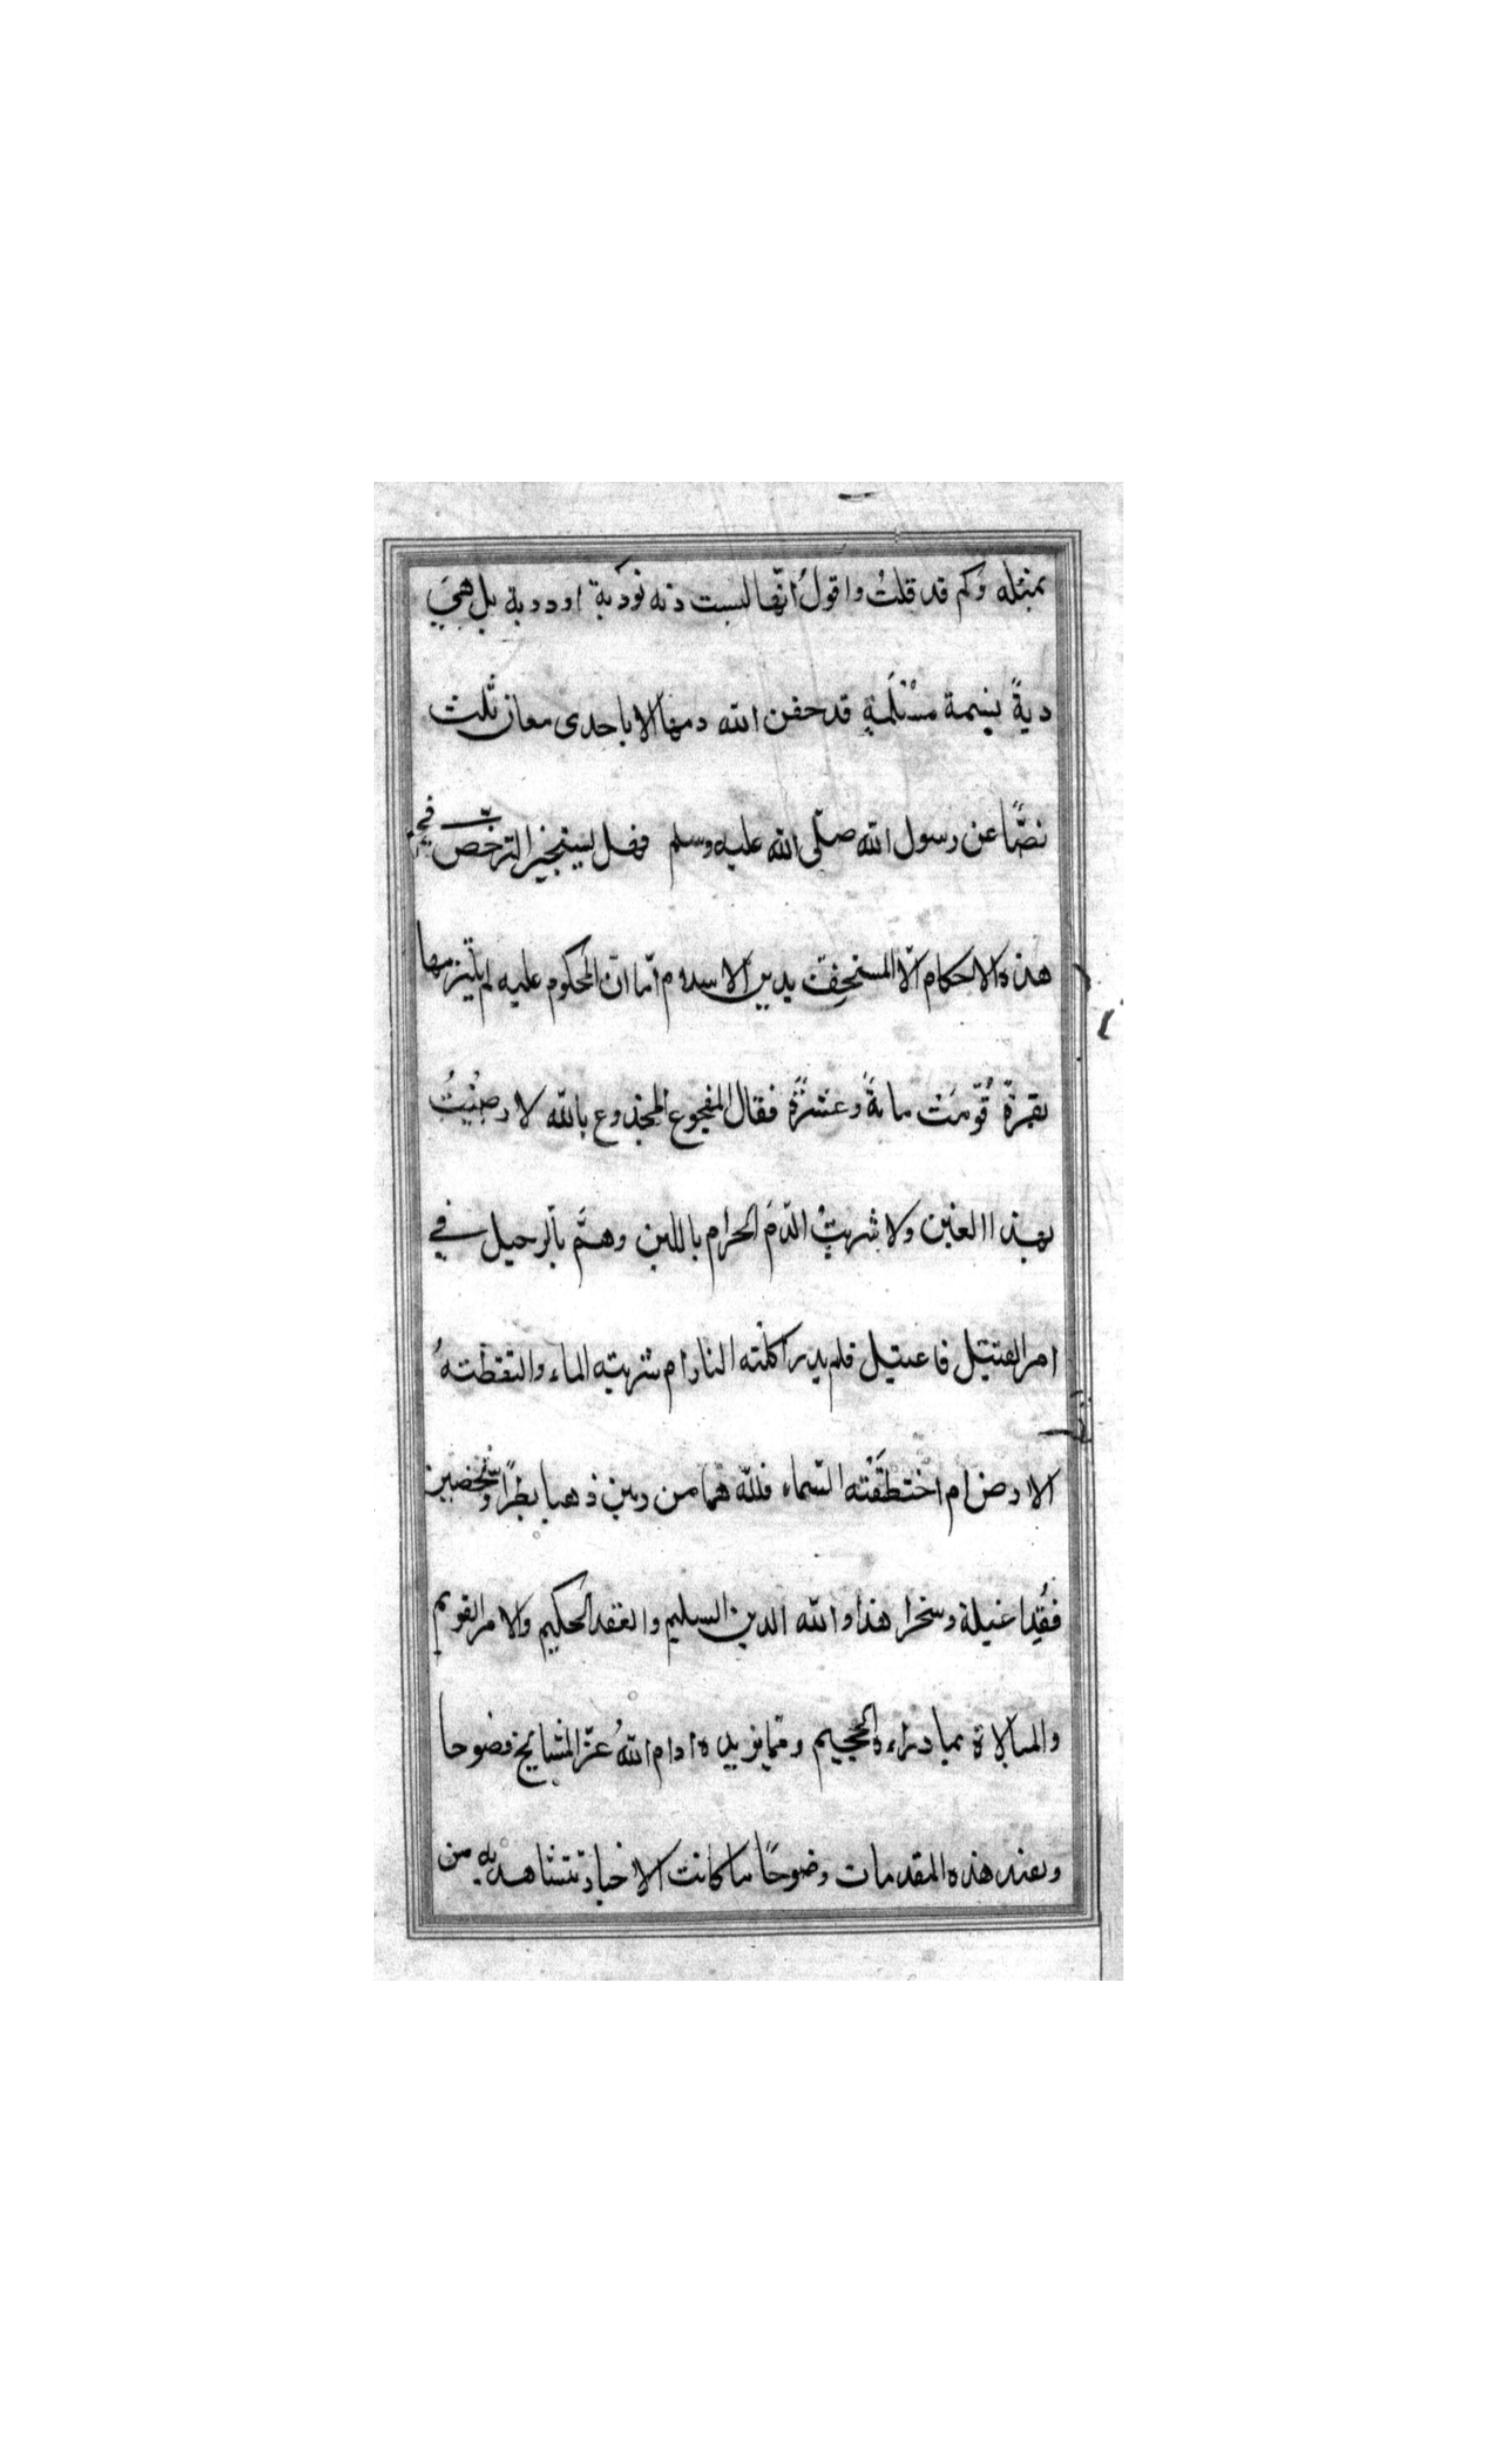 بمثله وكم قد قلتُ واقولُ انّها ليست دية نوكية او دوية بل هيَ
ديةً نسمة مسْلَمةٍ قد حقن الله دمها الا باحدى معان ثلث
نصًّا عن رسول الله صلّى الله عليه وسلم فهل يستجيز الترخّص في
هذه الاحكام الّا المستخفّ بدين الاسلام امّا انّ المحكوم عليه لم يلتزمها
بقرةً قُوّمَت مايةً وعشرَةً فقال المفجوع المخدوع بالله لا رضيتُ
بهذا الغبن ولا شربتُ الدّمَ الحرام باللبن وهمَّ بالرحيل في
امر القتيل فاغتيل فلم يدر اكلته النار ام شربته الماء والتقطتهُ
الارض ام اختطَفَته السّماء فللّه هما من دمين ذهبا بطرًا وشخصين
فُقِدا غيلة وسخرا هذا والله الدين السليم والعقد الحكيم والامر القويم
والمبالاة بما وراءه الجحيم وممّا يزيده ادام اللهُ عزّ المشايخ فضوحا
وبعد هذه المقدمات وضوحًا ما كانت الاخبار تتشاهد به من